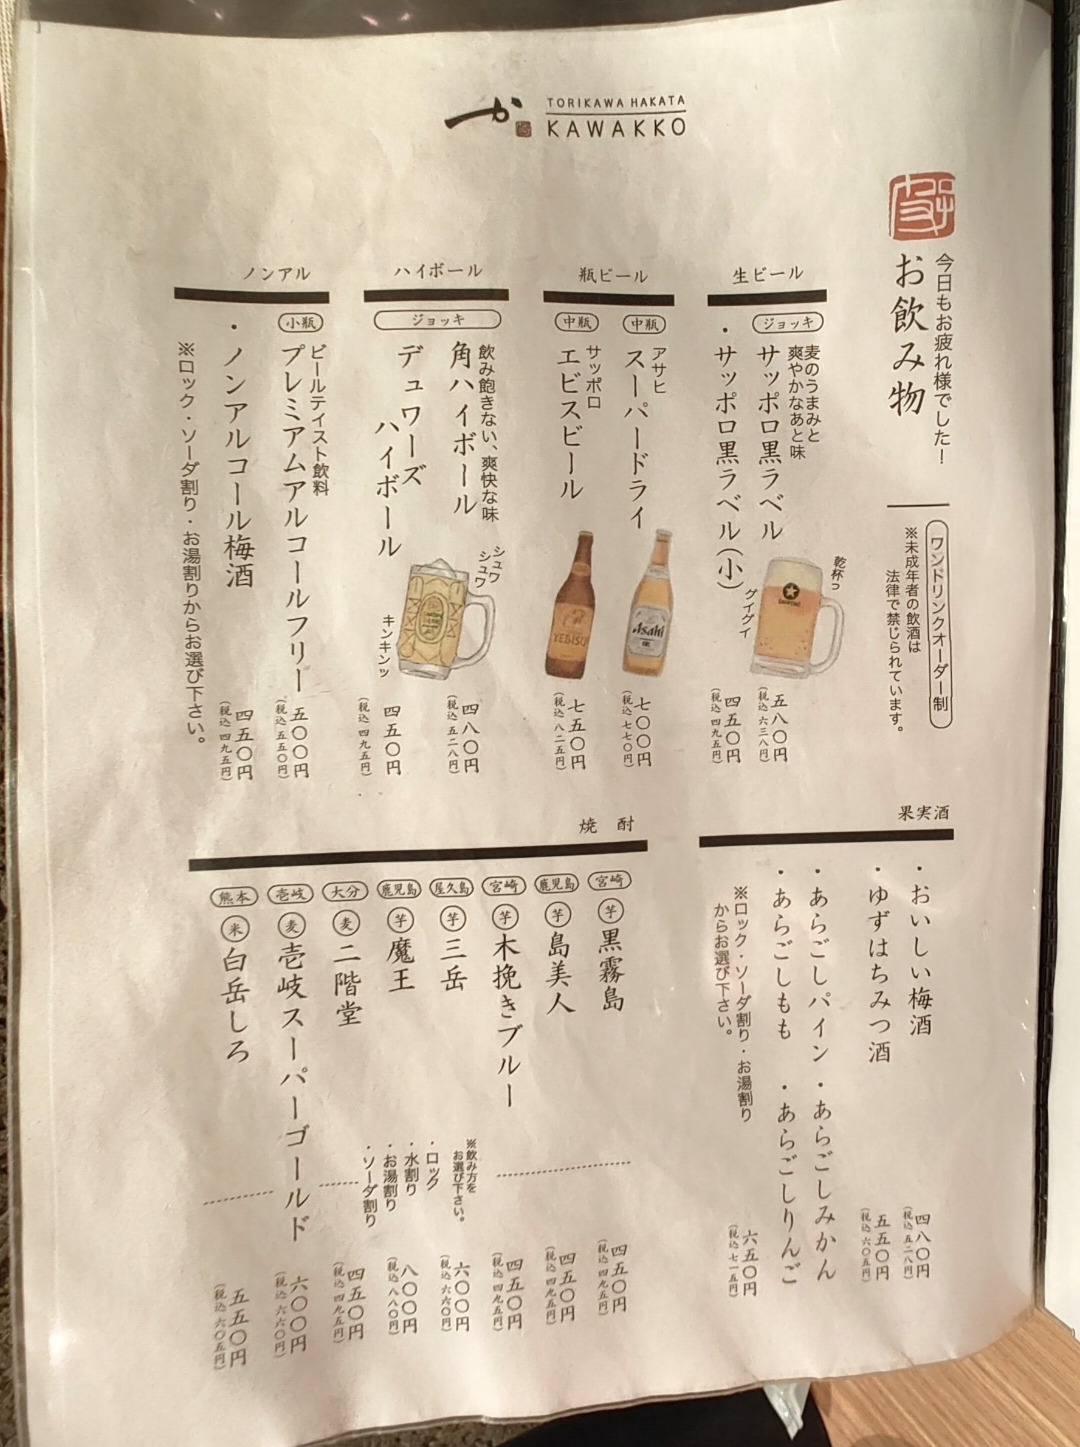 TORIKAWA HAKATA
KAWAKKO
今日もお疲れ様でした!
お飲み物
ワンドリンクオーダー制
※未成年者の飲酒は
法律で禁じられています。
生ビール
ジョッキ
麦のうまみと
爽やかなあと味
サッポロ黒ラベル
五八〇円
(税込 六三八円)
・サッポロ黒ラベル(小)
四五〇円
(税込 四九五円)
乾杯っ
グイグイ
瓶ビール
中瓶
アサヒ
スーパードライ
七〇〇円
(税込 七七〇円)
中瓶
サッポロ
エビスビール
七五〇円
(税込 八二五円)
Asahi
YEBISU
ハイボール
ジョッキ
飲み飽きない、爽快な味
角ハイボール
四八〇円
(税込 五二八円)
デュワーズ
ハイボール
四五〇円
(税込 四九五円)
シュワ
シュワ
キンキンッ
ノンアル
小瓶
ビールテイスト飲料
プレミアムアルコールフリー
五〇〇円
(税込 五五〇円)
・ノンアルコール梅酒
四五〇円
(税込 四九五円)
※ロック・ソーダ割り・お湯割りからお選び下さい。
果実酒
・おいしい梅酒
四八〇円
(税込 五二八円)
・ゆずはちみつ酒
五五〇円
(税込 六〇五円)
・あらごしパイン・あらごしみかん
・あらごしもも ・あらごしりんご
六五〇円
(税込 七一五円)
※ロック・ソーダ割り・お湯割り
からお選び下さい。
焼 酎
宮崎 芋 黒霧島
四五〇円
(税込 四九五円)
鹿児島 芋 島美人
四五〇円
(税込 四九五円)
宮崎 芋 木挽きブルー
四五〇円
(税込 四九五円)
屋久島 芋 三岳
六〇〇円
(税込 六六〇円)
鹿児島 芋 魔王
八〇〇円
(税込 八八〇円)
大分 麦 二階堂
四五〇円
(税込 四九五円)
壱岐 麦 壱岐スーパーゴールド
六〇〇円
(税込 六六〇円)
熊本 米 白岳しろ
五五〇円
(税込 六〇五円)
※飲み方を
お選び下さい。
・ロック
・水割り
・お湯割り
・ソーダ割り